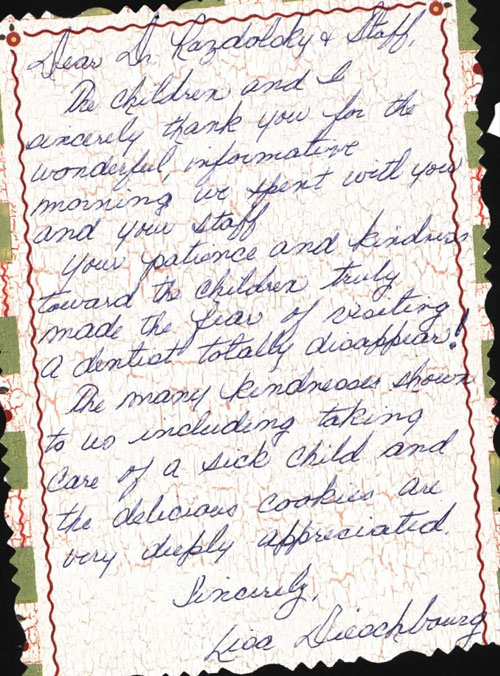 Dear Dr. Razdolsky & Staff,
The children and I
sincerely thank you for the
wonderful, informative
morning we spent with you
and your staff
Your patience and kindness
toward the children truly
made the fear of visiting
a dentist totally disappear!
The many kindnesses shown
to us including taking
care of a sick child and
the delicious cookies are
very deeply appreciated.
Sincerely,
Lisa